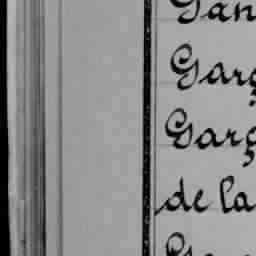 Gan
Garç
Garç
de la